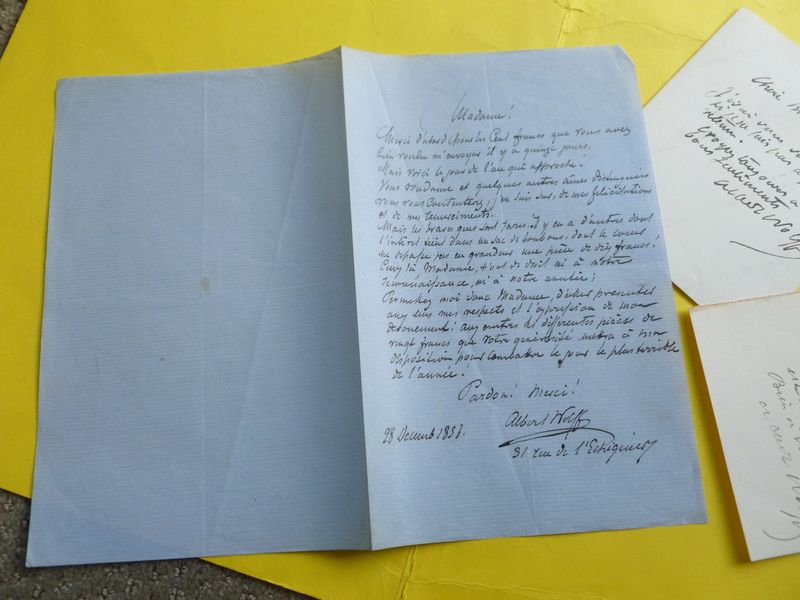 Madame!
Merci d'abord pour les Cent francs que vous avez
bien voulu m'envoyer il y a quinze jours.
Mais voici le jour de l'an qui approche!
Vous Madame et quelques autres âmes distinguées
vous vous contenterez, j'en suis sur, de mes félicitations
et de mes remerciments.
Mais les braves gens sont rares. Il y en a d'autres dont
l'intérêt dans un sac de bonbons, dont le coeur
ne dépasse pas en grandeur une pièce de dix francs!
Ceux là Madame, n'ont de droit ni à notre
reconnaissance, ni à notre amitié;
Permettez moi donc Madame, d'aller présenter
aux uns mes respects et l'expression de mon
dévouement; aux autres les différentes pièces de
vingt francs que votre générosité mettra à ma
disposition pour combattre le jour le plus terrible
de l'année!
Pardon! Merci!
Albert Wolff
28 Decemb 1858.
31 rue de l'Echiquier
Chère
j'irai vous
je suis pas
croyez toujours à
sentiments
Albert Wolff
Bien à